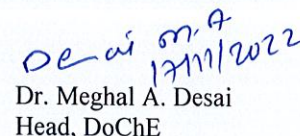 Desai M. A
17/11/2022
Dr. Meghal A. Desai
Head, DoChE